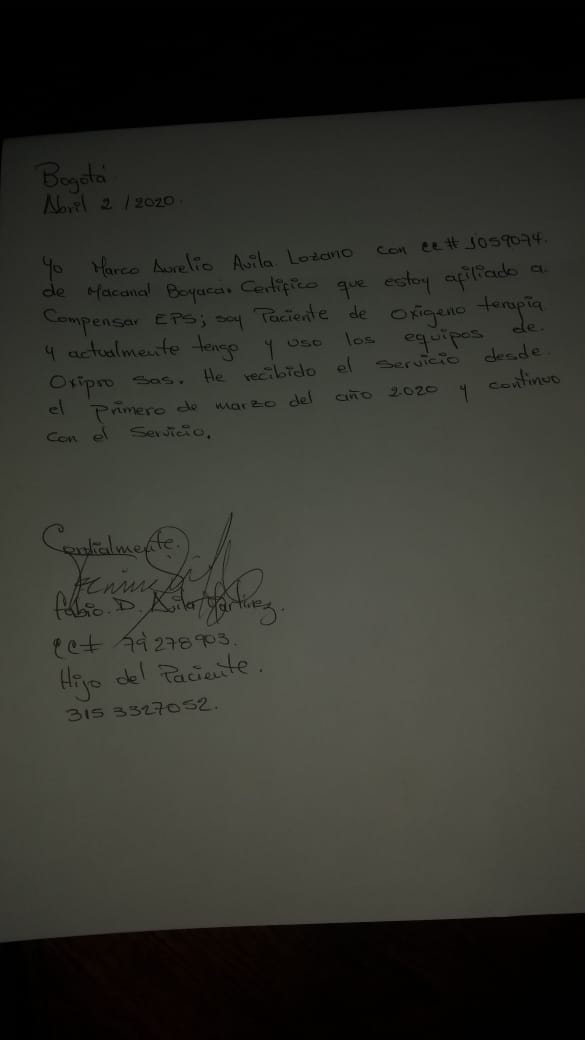 Bogotá
Abril 2 / 2020.
Yo Marco Aurelio Avila Lozano con cc # 1059074.
de Macanal Boyacá. Certifico que estoy afiliado a
Compensar EPS; soy Paciente de Oxigeno terapia
y actualmente tengo y uso los equipos de.
Oxipro sas. He recibido el servicio desde.
el Primero de marzo del año 2.020 y continuo
con el Servicio.
Cordialmente.
Fabio. D. Avila Martinez.
CC# 79 278 903.
Hijo del Paciente.
315 3327052.